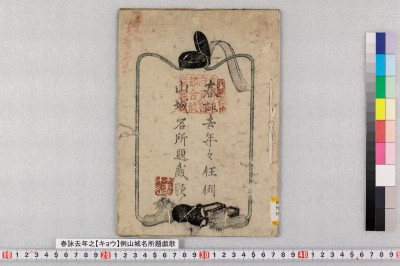 春詠去年之任例
山城名所題戯歌
春詠去年之【キョウ】例山城名所題戯歌